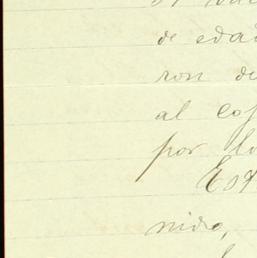 de edad
ron de
al co
por lo
Est
nidro,